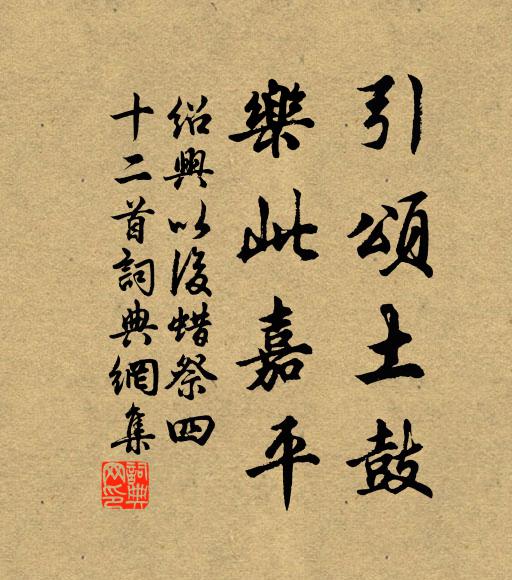 引頌土鼓
樂此嘉平
紹興以後蜡祭四
十二首詞典網集
詞典网印